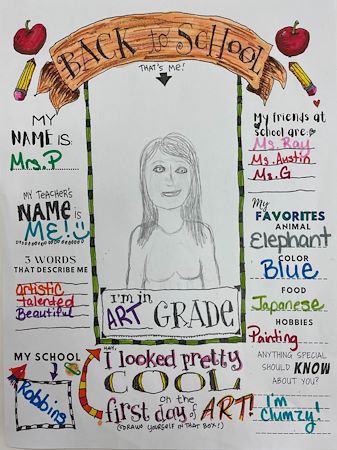 BACK to SCHOOL
THAT'S ME!
MY
NAME IS:
Mrs. P
MY TEACHER'S
NAME is
ME!
3 WORDS
THAT DESCRIBE ME
artistic
talented
Beautiful
MY SCHOOL
Robbins
I'm in
ART GRADE
HA!
I looked pretty
COOL
on the
first day of ART!
(DRAW YOURSELF IN THAT BOX!)
My friends at
school are:
Ms. Ray
Ms. Austin
Ms. G
My
FAVORITES
ANIMAL
Elephant
COLOR
Blue
FOOD
Japanese
HOBBIES
Painting
ANYTHING SPECIAL
SHOULD I KNOW
ABOUT YOU?
I'm
Clumzy!